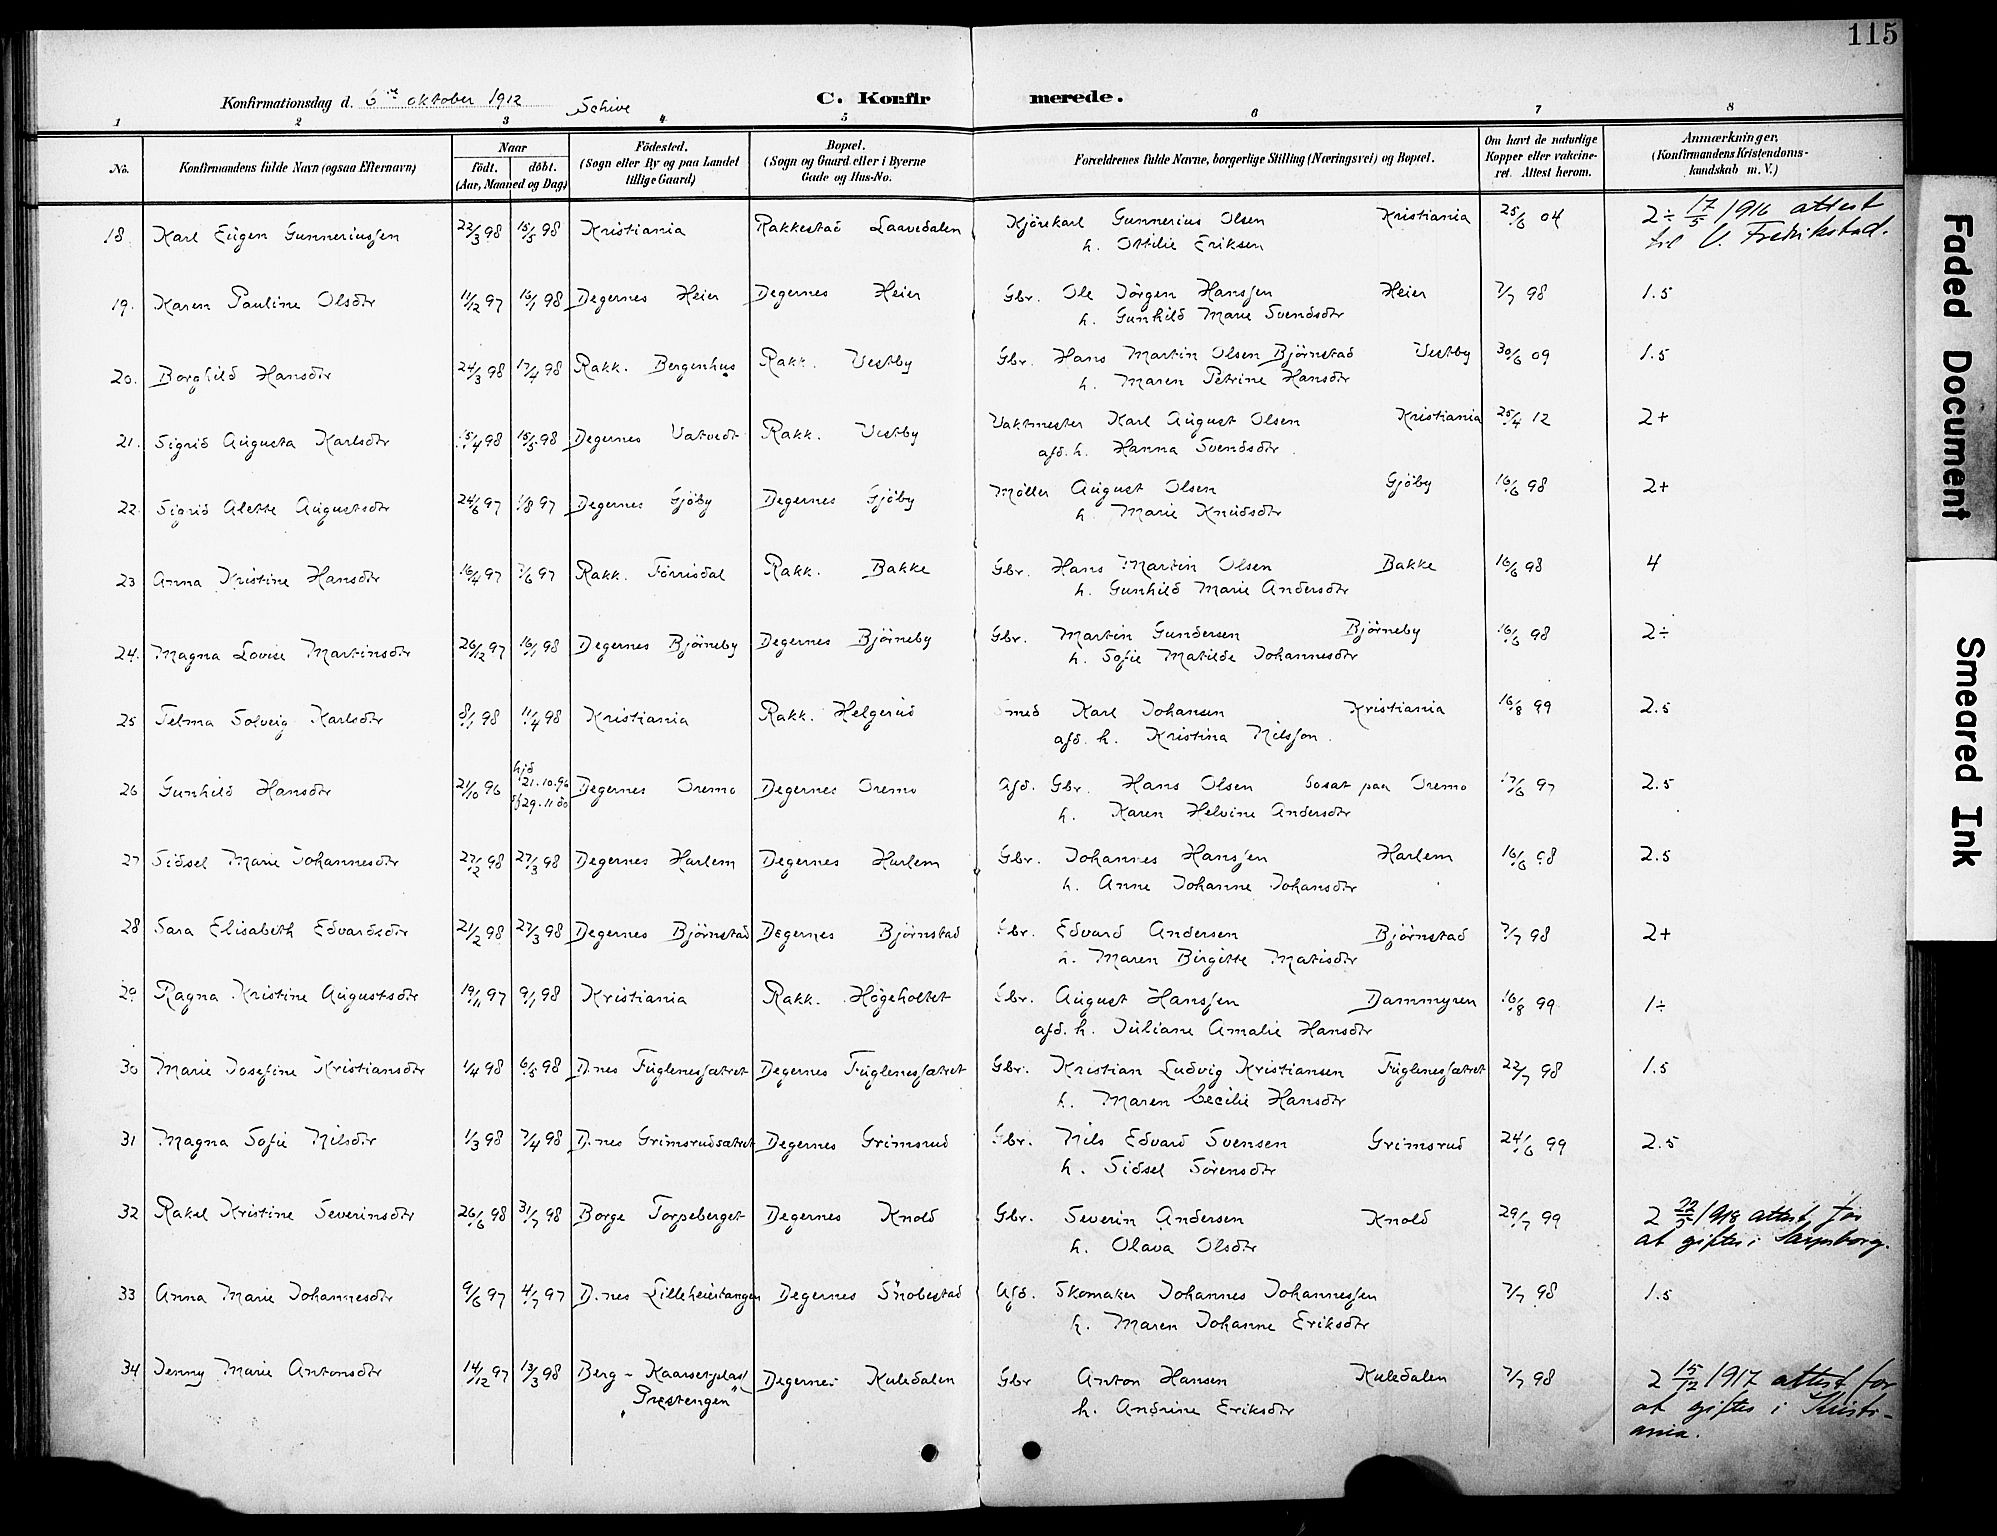 115
Konfirmationsdag d. 6te oktober 1912 Schive C. Konfirmerede.
1 2 3 4 5 6 7 8
No. Konfirmandens fulde Navn (ogsaa Efternavn) Naar födt. döbt. (Aar, Maaned og Dag) Födested. (Sogn eller By og paa Landet tillige Gaard) Bopæl. (Sogn og Gaard eller i Byerne Gade og Hus-No. Forældrenes fulde Navne, borgerlige Stilling (Næringsvei) og Bopæl. Om havt de naturlige Kopper eller vakcineret. Attest herom. Anmærkninger. (Konfirmandens Kristendomskundskab m. V.)
18. Karl Eugen Gunneriussen 22/3 98 15/5 98 Kristiania Rakkestad Laavedalen Kjörekarl Gunnerius Olsen Kristiania 25/6 04 2÷ 17/5 1916 attest
h. Ottilie Eriksen til V. Fredrikstad.
19. Karen Pauline Olsdtr 11/12 97 16/1 98 Degernes Heier Degernes Heier Gbr. Ole Jörgen Hanssen Heier 7/7 98 1.5
h. Gunhild Marie Svendsdtr
20. Borghild Hansdtr 24/3 98 17/4 98 Rakk. Bergenhus Rakk. Vestby Gbr. Hans Martin Olsen Björnstad Vestby 30/6 09 1.5
h. Maren Petrine Hansdtr
21. Sigrid Augusta Karlsdtr 15/4 98 15/5 98 Degernes Vatvedt Rakk. Vestby Vaktmester Karl August Olsen Kristiania 25/4 12 2+
afd. h. Hanna Svendsdtr.
22. Sigrid Alette Augustsdtr 24/6 97 1/8 97 Degernes Gjöby Degernes Gjöby Möller August Olsen Gjöby 16/6 98 2+
h. Marie Knudsdtr
23 Anna Kristine Hansdtr 16/4 97 7/6 97 Rakk. Förrisdal Rakk. Bakke Gbr. Hans Martin Olsen Bakke 16/6 98 4
h. Gunhild Marie Andersdtr
24. Magna Lovise Martinsdtr 26/12 97 16/1 98 Degernes Björneby Degernes Björneby Gbr. Martin Gundersen Björneby 16/6 98 2÷
h. Sofie Matilde Johannesdtr
25 Telma Solveig Karlsdtr 8/1 98 11/4 98 Kristiania Rakk. Helgerud Smed Karl Johansen Kristiania 16/8 99 2.5
afd. h. Kristina Nilsson.
26 Gunhild Hansdtr 21/10 96 hjd 21.10.96 Degernes Oremo Degernes Oremo Afd. Gbr. Hans Olsen bosat paa Oremo 17/6 97 2.5
h. Karen Helvine Andersdtr
27 Sidsel Marie Johannesdtr 27/2 98 27/3 98 Degernes Harlem Degernes Harlem Gbr. Johannes Hanssen Harlem 16/6 98 2.5
h. Anne Johanne Johansdtr
28 Sara Elisabeth Edvardsdtr 21/2 98 27/3 98 Degernes Björnstad Degernes Björnstad Gbr. Edvard Andersen Björnstad 7/7 98 2+
h. Maren Birgitte Matisdtr
29 Ragna Kristine Augustsdtr 19/11 97 9/1 98 Kristiania Rakk. Högeholtet Gbr. August Hanssen Dammyren 16/8 99 1÷
afd. h. Juliane Amalie Hansdtr
30 Marie Josefine Kristiansdtr 1/4 98 6/6 98 D.nes Fuglenessætret Degernes Fuglenessætret Gbr. Kristian Ludvig Kristiansen Fuglenessætret 22/7 98 1.5
h. Maren Cecilie Hansdtr
31 Magna Sofie Nilsdtr 1/3 98 7/4 98 D.nes Grimsrudsætret Degernes Grimsrud Gbr. Nils Edvard Svensen Grimsrud 24/6 99 2.5
h. Sidsel Sörensdtr
32 Rakel Kristine Severinsdtr 26/6 98 31/7 98 Borge Torpeberget Degernes Knold Gbr. Severin Andersen Knold 29/7 99 2 22/5 1918 attest for
h. Olava Olsdtr at giftes i Sarpsborg.
33 Anna Marie Johannesdtr 9/6 97 4/7 97 D.nes Lilleheiestangen Degernes Snobestad Afd. Skomaker Johannes Johannessen 7/7 98 1.5
h. Maren Johanne Eriksdtr
34 Jenny Marie Antonsdtr 14/12 97 13/3 98 Berg - Kaarsetplas Degernes Kuledalen Gbr Anton Hansen Kuledalen 7/7 98 2 15/12 1917 attest for
"Prestengen" h. Andrine Eriksdtr at giftes i Kristiania.
Faded Document
Smeared Ink